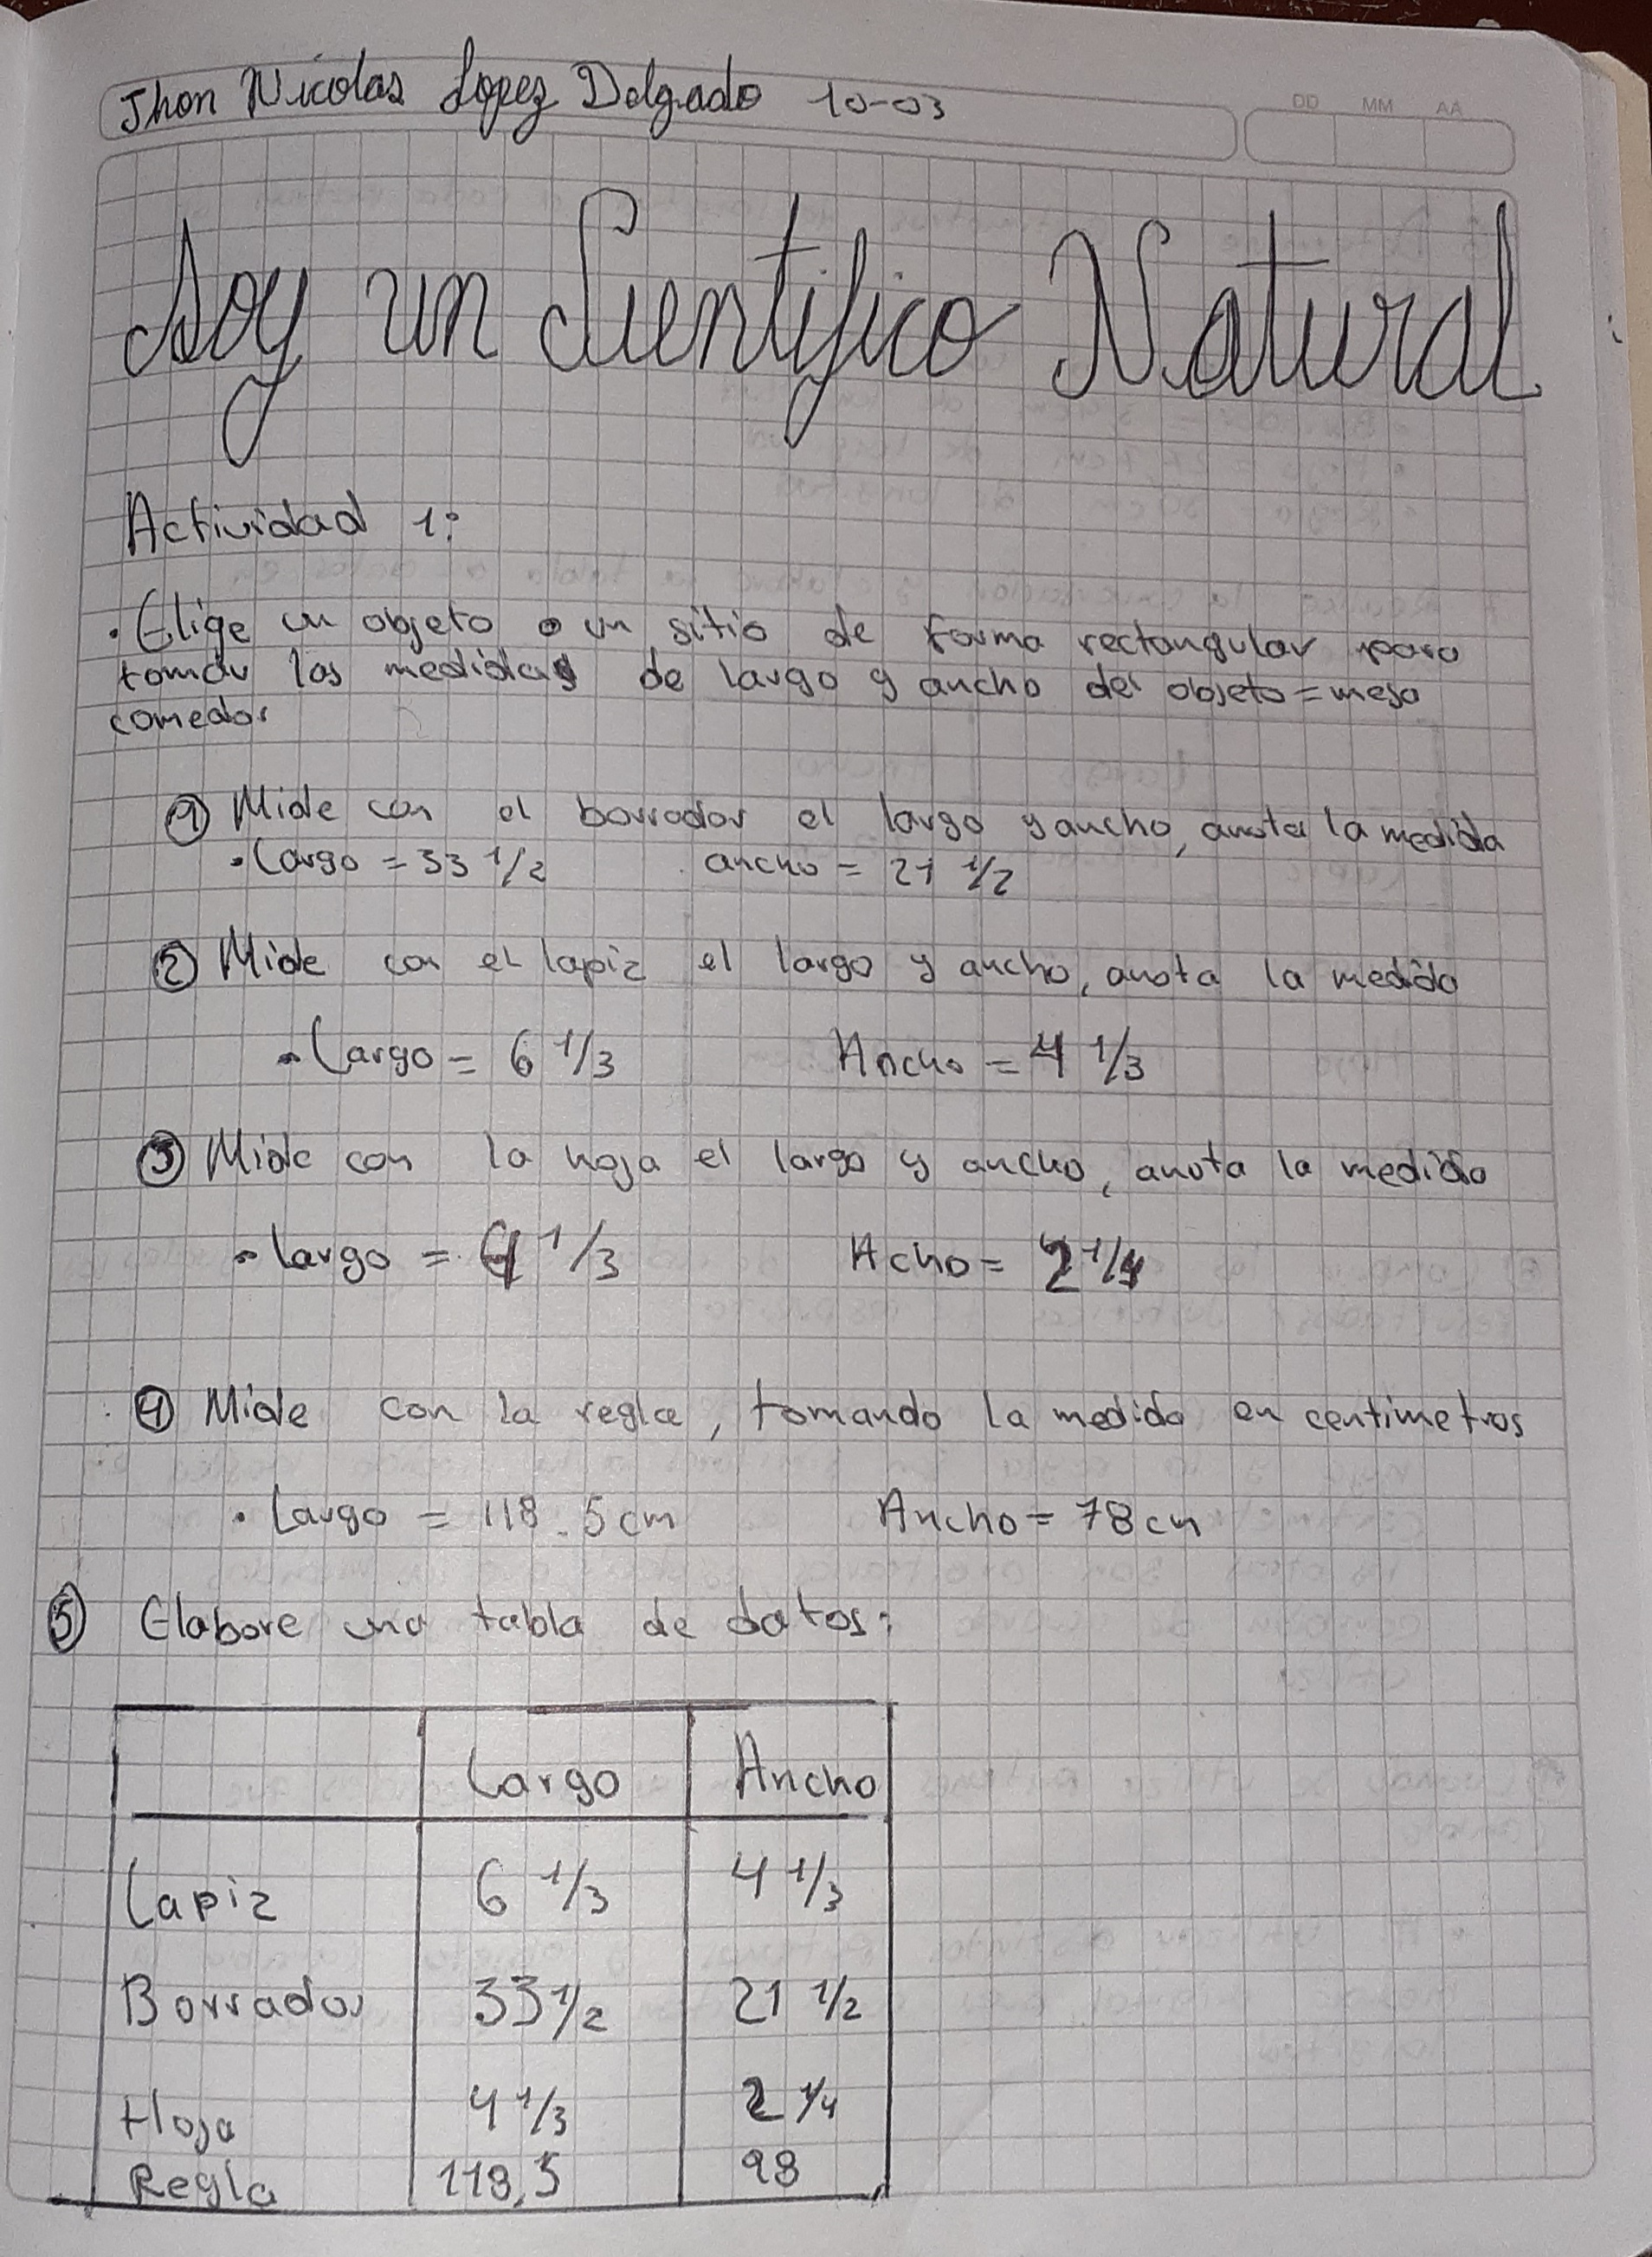 Jhon Nicolas Lopez Delgado 10-03
DD MM AA
Soy un Cientifico Natural
Actividad 1:
• Elige un objeto o un sitio de forma rectangular para
tomar las medidas de largo y ancho del objeto = mesa
comedor
① Mide con el borrador el largo y ancho, anota la medida
• Largo = 33 1/2 ancho = 21 1/2
② Mide con el lapiz el largo y ancho, anota la medida
- Largo = 6 1/3 Ancho = 4 1/3
③ Mide con la hoja el largo y ancho, anota la medida
- largo = 4 1/3 Acho = 2 1/4
④ Mide con la regla, tomando la medida en centimetros
• Largo = 118.5cm Ancho = 78cm
⑤ Elabore una tabla de datos:
Largo Ancho
Lapiz 6 1/3 4 1/3
Borrador 33 1/2 21 1/2
Hoja 4 1/3 2 1/4
Regla 118,5 98